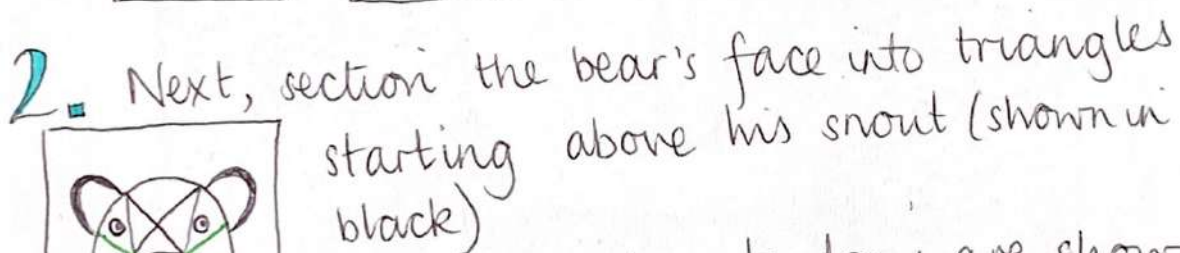 2. Next, section the bear's face into triangles
starting above his snout (shown in
black)
are